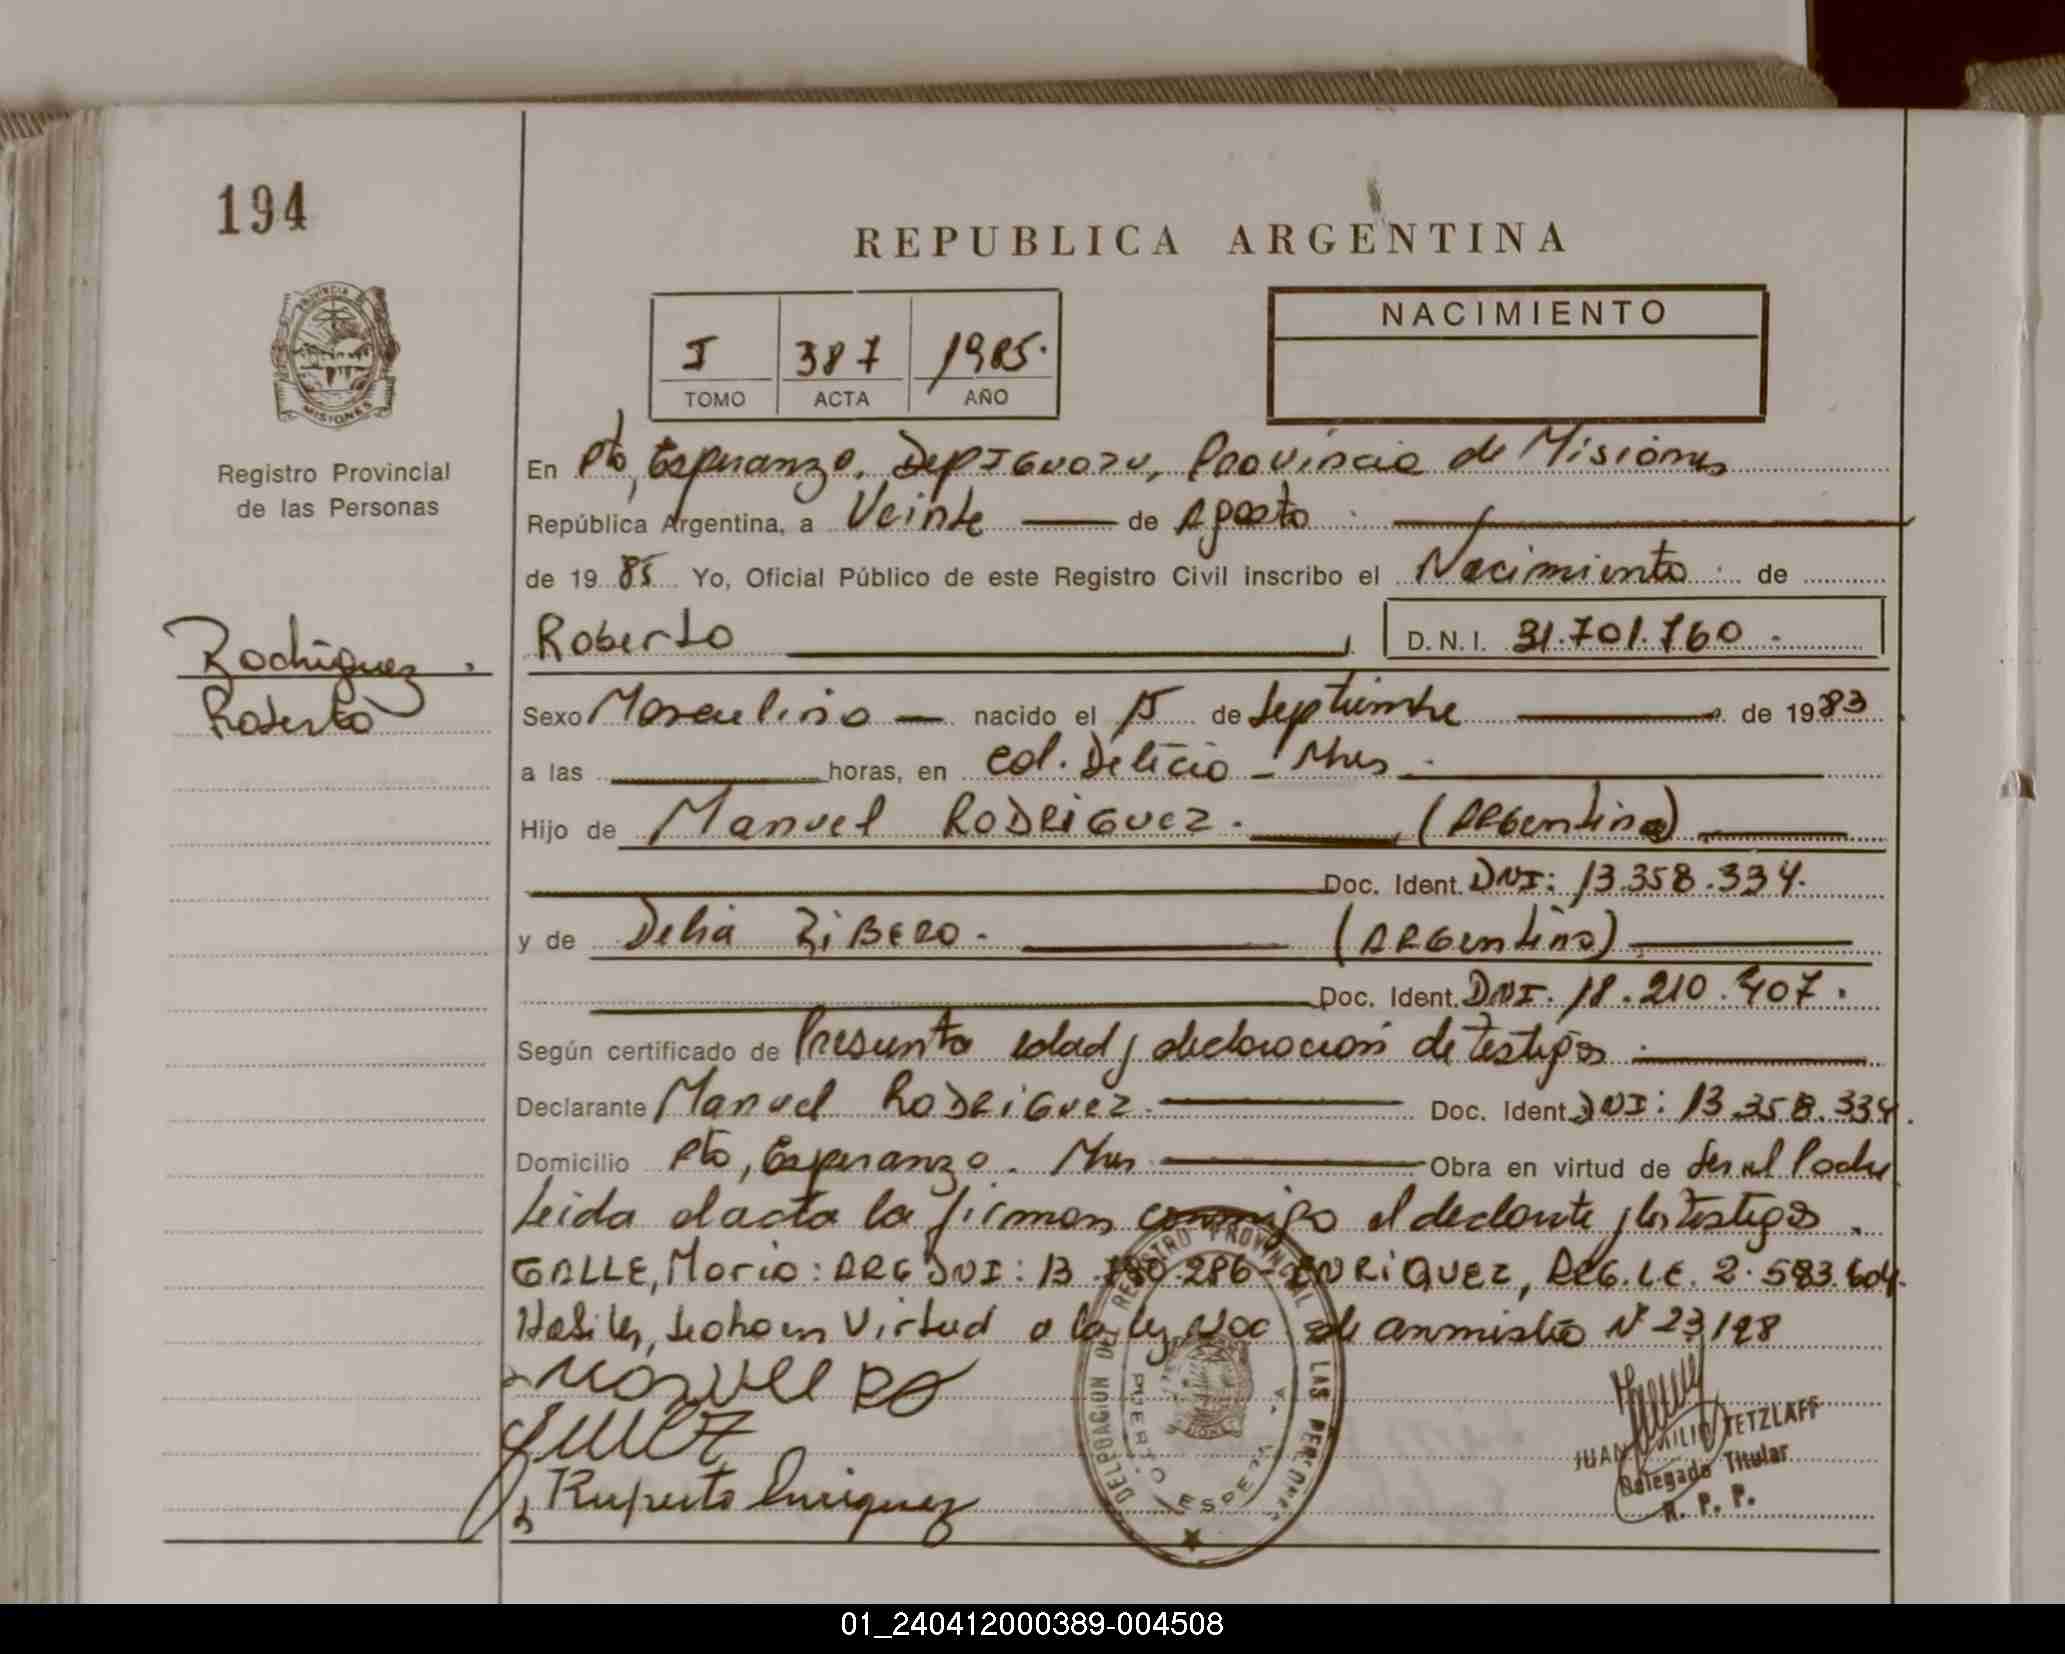 194
REPUBLICA ARGENTINA
PROVINCIA DE MISIONES
Registro Provincial
de las Personas
I 387 1985.
TOMO ACTA AÑO
NACIMIENTO
En Pto, Esperanza. Dep IGUAZU, Provincia de Misiones
República Argentina, a Veinte de Agosto
de 19 85 Yo, Oficial Público de este Registro Civil inscribo el Nacimiento de
Roberto D.N.I. 31.701.760.
Rodriguez.
Roberto
Sexo Masculino nacido el 15 de Septiembre de 1983
a las horas, en Col. Delicia - Mnes
Hijo de Manuel RODRIGUEZ. (ARGentino)
Doc. Ident. DNI: 13.358.334.
y de Delia ZiBERO. (ARGentina)
Doc. Ident. DNI. 18.210.407.
Según certificado de Presunta edad y declaracion de testigos
Declarante Manuel RODRIGUEZ. Doc. Ident. DNI: 13.358.334.
Domicilio Pto, Esperanza. Mnes Obra en virtud de Ser el Padre
Leida el acta la firman conmigo el declarante y los testigos.
GALLE, Mario: ARG DNI: 13. 286- ENRIQUEZ, ARG. L.E. 2.583.604.
Habiles, en Virtud a la ley Nac de anmistia Nº 23.128
Manuel RO
Ruperto Enriquez
DELEGACION DEL REGISTRO PROVINCIAL DE LAS PERSONAS
PUERTO ESPERANZA
JUAN EMILIO TETZLAFF
Delegado Titular
R. P. P.
01_240412000389-004508